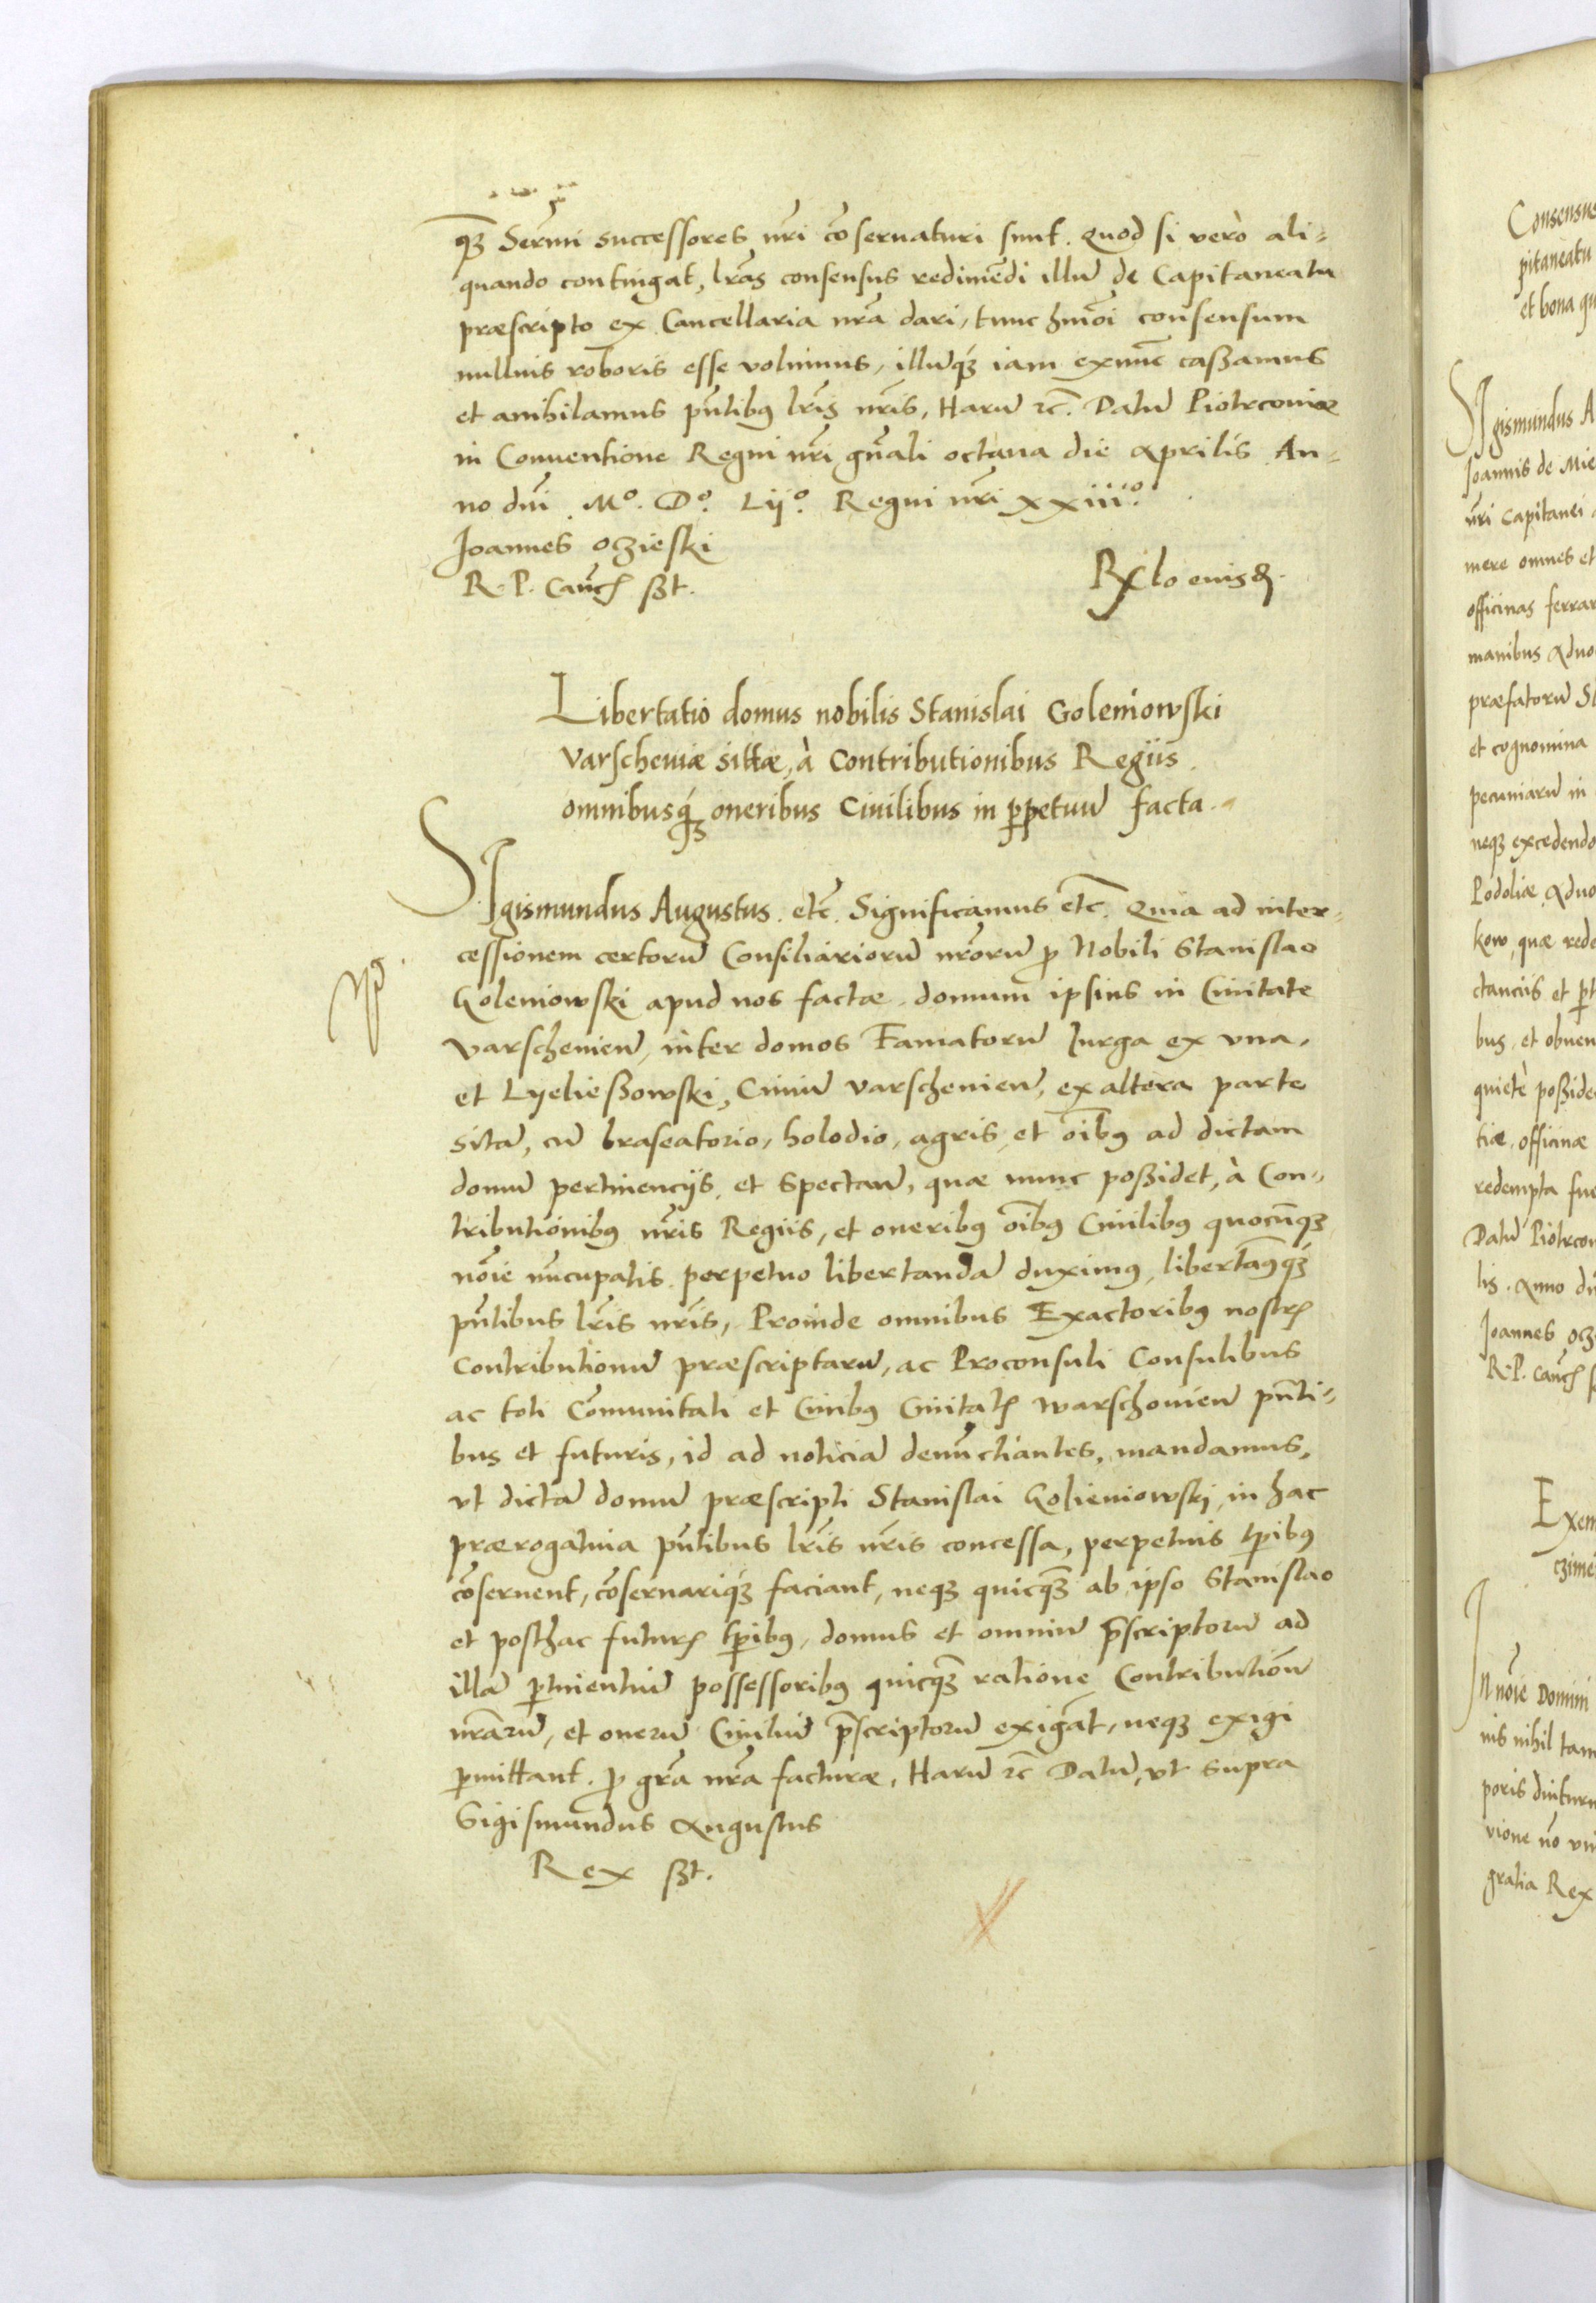 q̄ꝫ Serm̄i successores nr̄i cōseruaturi sunt. Quod si verò ali=
quando contingat, lr̄as consensus redimēdi illū de Capitaneatu
præscripto ex Cancellaria nr̄a dari, tunc hm̄oi consensum
nullius roboris esse volumus, illūqꝫ iam exnūc caßamus
et anihilamus pn̄tibus lr̄is nr̄is, Harū ꝛc̄. Datū Piotrcouiæ
in Conuentione Regni nr̄i gn̄ali octaua die Aprilis An=
no dn̄i Mº. Dº. Lijº. Regni nr̄i xxiiiº.
Joannes oczieski
R. P. Canc̄ ßt.
Libertatio domus nobilis Stanislai Goleniowski
Varscheuiæ sittæ, à Contributionibus Regiis
omnibusqꝫ oneribus Ciuilibus in ꝑpetuū facta.
SIgismundus Augustus. etc̄. Significamus etc̄. Quia ad inter=
cessionem certorū Consiliariorū nr̄orū ꝓ Nobili Stanislao
Goleniowski apud nos factæ, domum ipsius in Ciuitate
Varscheuien̄, inter domos Famatorū Jurga ex vna,
et Lyeließowski, Ciuiū varscheuien̄, ex altera parte
sitā, cū braseatorio, holodio, agris et oībꝰ ad dictam
domū pertinencijs et spectan̄, quæ nunc poßidet, à Con=
tributionibꝰ nr̄is Regiis, et oneribꝰ oībꝰ Ciuilibꝰ quocūqꝫ
noīe nūcupatis perpetuo libertandā duximꝰ, libertamꝰqꝫ
pn̄tibus lr̄is nr̄is, Proinde omnibus Exactoribꝰ nostrꝭ
Contributionū præscriptarū, ac Proconsuli Consulibus
ac toti Cōmunitati et Ciuibꝰ Ciuitatꝭ Warschouien̄ pn̄ti=
bus et futuris, id ad noticiā denūctiantes, mandamus,
vt dictā domū præscripti Stanislai Golieniowski, in hac
prærogatiua pn̄tibus lr̄is nr̄is concessa, perpetuis tꝑibꝰ
cōseruent, cōseruariqꝫ faciant, neqꝫ quicqꝫ̄ ab ipso Stanislao
et posthac futurꝭ tꝑibꝰ, domus et omniū p̄scriptorū ad
illā ꝑtinentiū possessoribꝰ quicqꝫ̄ ratione Contributionū
nr̄arū, et onerū Ciuiliū p̄scriptorū exigāt, neqꝫ exigi
ꝑmittant. ꝓ gr̄a nr̄a facturæ, Harū ꝛc̄ Datū, vt supra
Sigismundus Augustus
Rex ßt.
Consensus
pitaneatu
et bona
SIgismundus A
Joannis de Mie
nr̄i Capitanei
mere omnes et
officinas ferrar
manibus Aduo
præfatorū St
et cognomina
pecuniarū in
neqꝫ excedendo
Podoliæ Aduo
kow, quæ rede
ctanciis et
bus, et obuen
quietè poßide
tiæ, officinæ
redempta fue
Datū Piotrcou
lis. Anno
Joannes ocz
R. P. Canc̄
Exem
czime
In noīe Domini
nis nihil tam
poris diuturn
uione nō
gratia Rex